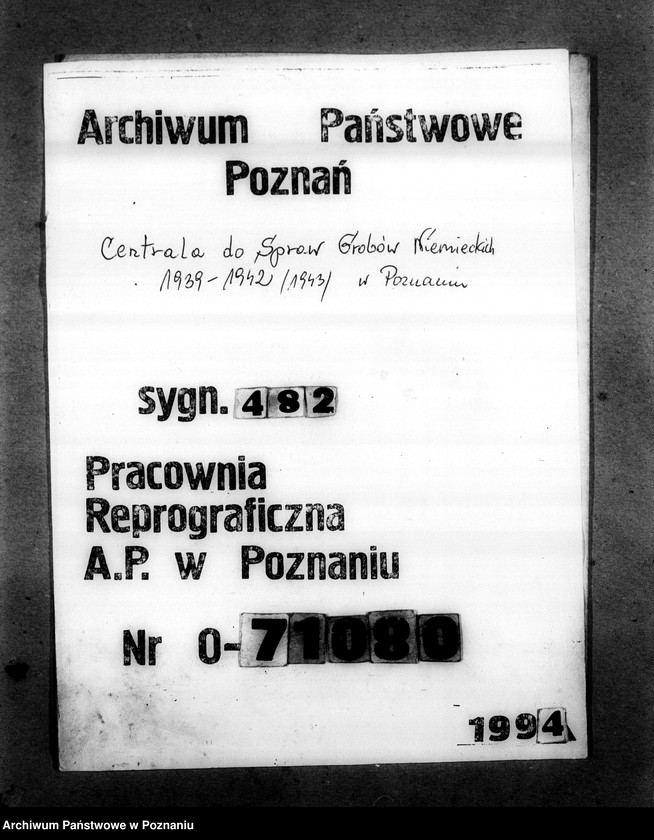 Archiwum Państwowe
Poznań
Centrala do Spraw Grobów Niemieckich
1939-1942 /1943/ w Poznaniu
sygn. 482
Pracownia
Reprograficzna
A.P. w Poznaniu
Nr O-71080
1994
Archiwum Państwowe w Poznaniu